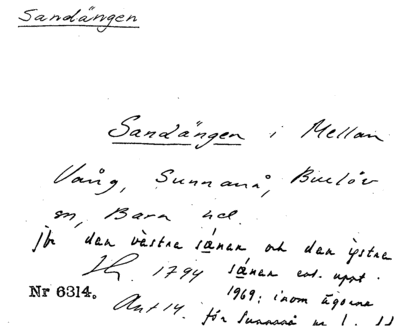 Sandängen
Sandängen i Mellan
Vång, Sunnanå, Burlöv
sn, Bara hd.
jfr den västra sånan och den östra
Ih. 1794 sånan enl. uppt.
1969: inom ägorna
Nr 6314.
för Sunnanå nr 1.